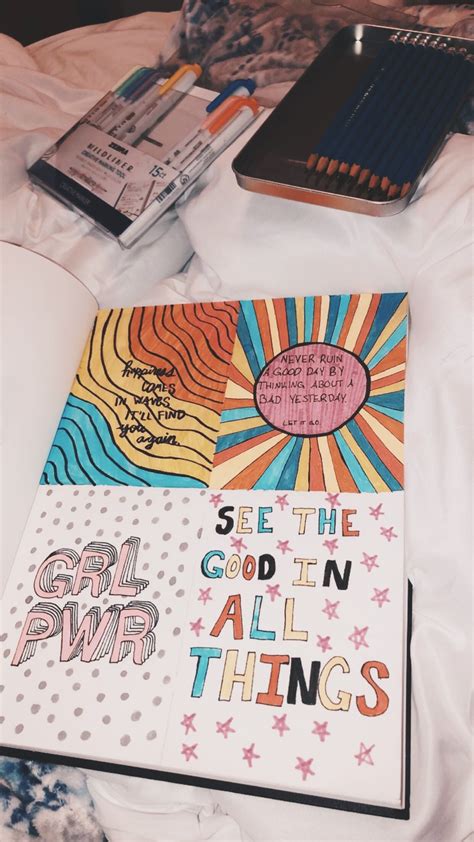 ZEBRA
MILDLINER
CREATIVE MARKING TOOL
15ct
happiness
COMES
IN WAVES
IT'LL FIND
you
again.
NEVER RUIN
A GOOD DAY BY
THINKING ABOUT A
BAD YESTERDAY.
LET IT GO.
GRL
PWR
SEE THE
GOOD IN
ALL
THINGS